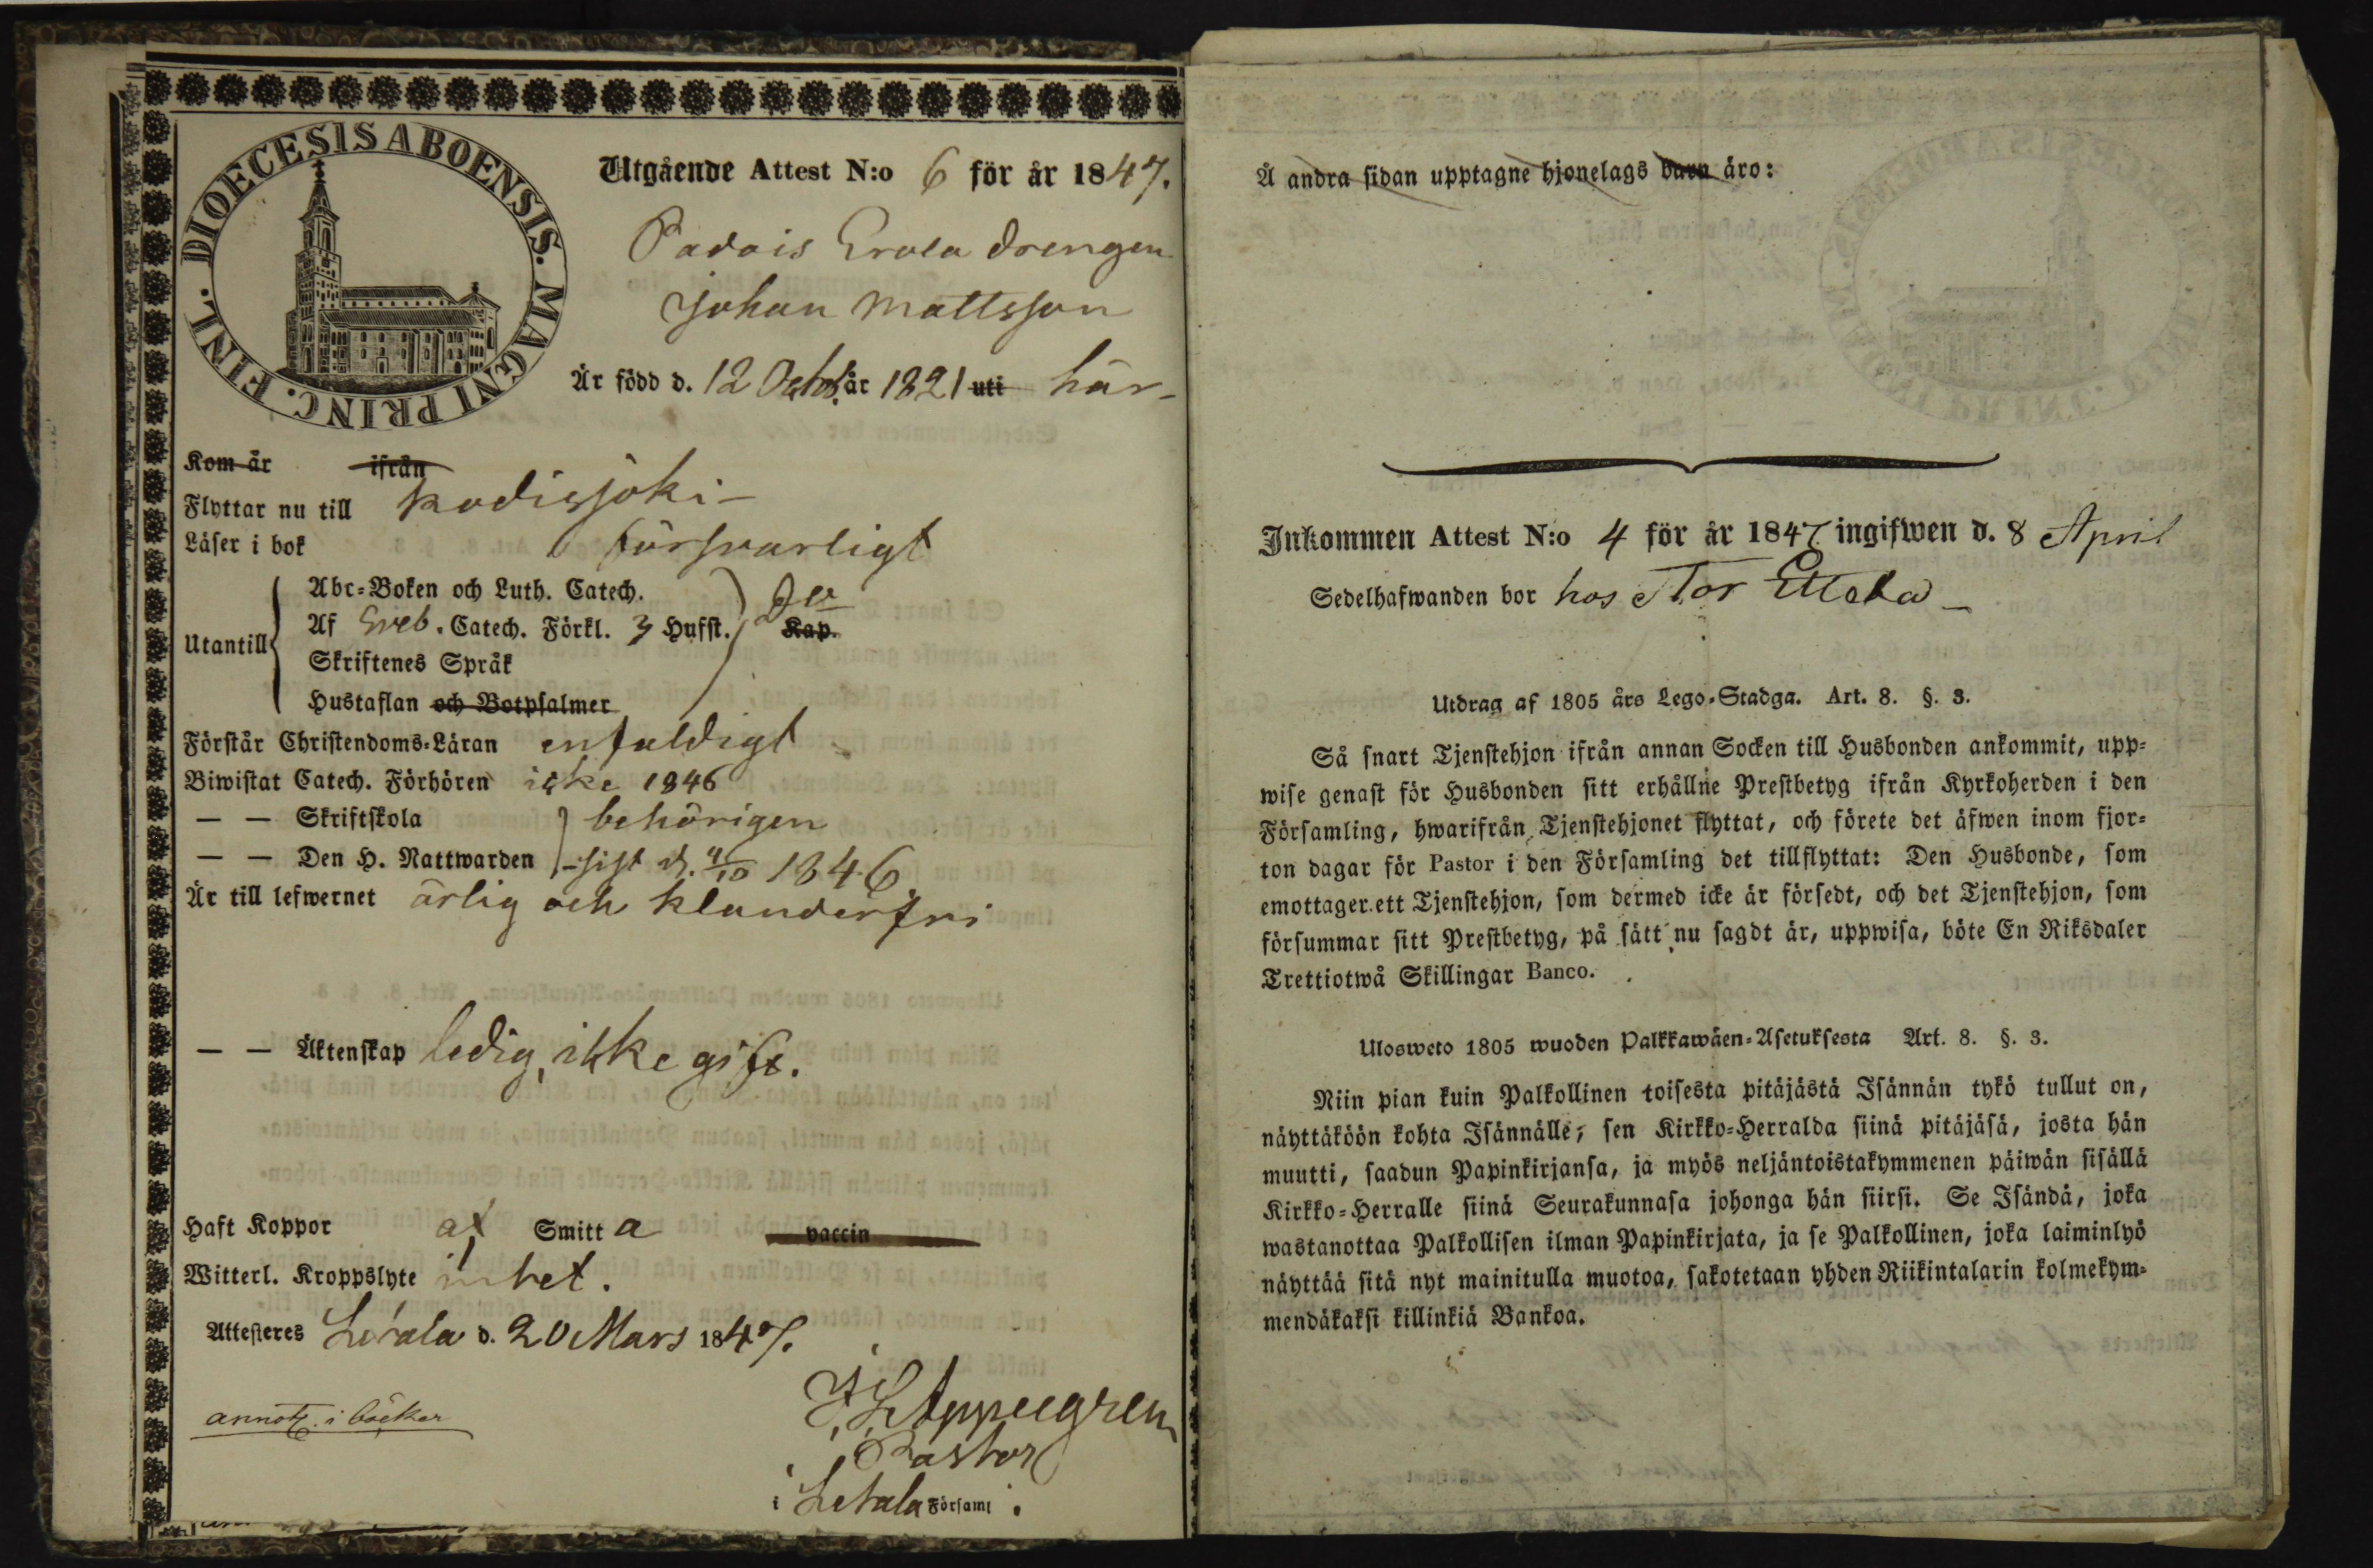 DIOECESIS ABOENSIS. MAGNI PRINC. FINL.
Utgående Attest N:o 6 för år 1847.
Padois Erola drengen
Johan Mattsson
Är född d. 12 Octob. år 1821 uti här
Kom år ifrån
Flyttar nu till Kodisjoki
Läser i bok försvarligt
Utantill
Abc-Boken och Luth. Catech.
Af Sveb. Catech. Förkl. 3 Hufst. Kap.
Skriftenes Språk
Hustaflan och Botpsalmer
Förstår Christendoms-Läran enfaldigt
Biwistat Catech. Förhören icke 1846
— — Skriftskola behörigen
— — Den H. Nattwarden sist d. 4/10 1846.
Är till lefwernet ärlig och klanderfri
— — Äktenskap ledig, ikke gift.
Haft Koppor a Smitt a vaccin
Witterl. Kroppslyte intet.
Attesteres Letala d. 20 Mars 1847.
annot. i böcker
Pastor
i Letala Församl.
Å andra sidan upptagne hjonelags barn äro:
Inkommen Attest N:o 4 för år 1847 ingifwen d. 8 April
Sedelhafwanden bor hos Stor Ettala
Utdrag af 1805 års Lego-Stadga. Art. 8. §. 3.
Så snart Tjenstehjon ifrån annan Socken till Husbonden ankommit, upp-
wise genast för Husbonden sitt erhållne Prestbetyg ifrån Kyrkoherden i den
Församling, hwarifrån Tjenstehjonet flyttat, och förete det äfwen inom fjor-
ton dagar för Pastor i den Församling det tillflyttat: Den Husbonde, som
emottager ett Tjenstehjon, som dermed icke är försedt, och det Tjenstehjon, som
försummar sitt Prestbetyg, på sätt nu sagdt är, uppwisa, böte En Riksdaler
Trettiotwå Skillingar Banco.
Ulosweto 1805 wuoden Palkkawäen-Asetuksesta Art. 8. §. 3.
Niin pian kuin Palkollinen toisesta pitäjästä Isännän tykö tullut on,
näyttäköön kohta Isännälle, sen Kirkko-Herralda siinä pitäjäsä, josta hän
muutti, saadun Papinkirjansa, ja myös neljäntoistakymmenen päiwän sisällä
Kirkko-Herralle siinä Seurakunnasa johonga hän siirsi. Se Isändä, joka
wastanottaa Palkollisen ilman Papinkirjata, ja se Palkollinen, joka laiminlyö
näyttää sitä nyt mainitulla muotoa, sakotetaan yhden Riikintalarin kolmekym-
mendäkaksi killinkiä Bankoa.